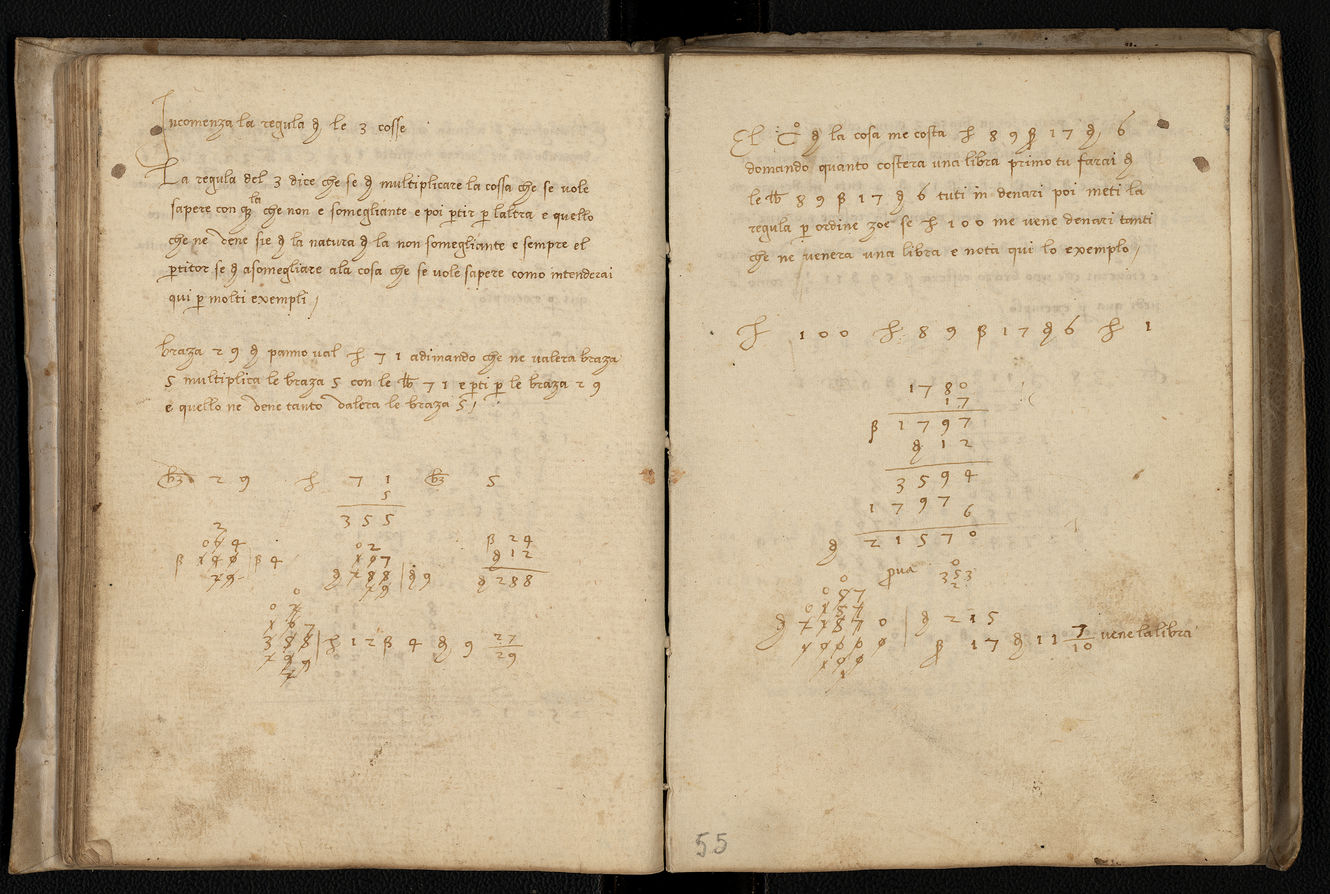 Incomenza la regula d le 3 cosse
La regula del 3 dice che se d multiplicare la cossa che se vole
sapere con q̃lla che non e somegliante e poi p̱tir p̱ laltra e quello
che ne vene sie d la natura d la non somegliante e sempre el
p̱titor se d asomegliare ala cosa che se vole sapere como intenderai
qui p̱ molti exempli /
braza 29 d panno val lb 71 adimando che ne valera braza
5 multiplica le braza 5 con le lb 71 e p̱ti p̱ le braza 29
e quello ne vene tanto valera le braza 5 /
bz 29 lb 71 bz 5
5
355
β 24
d 12
d 288
β 4
d 9
lb 12 β 4 d 9 27/29
El Cº d la cosa me costa lb 89 β 17 d 6
domando quanto costera una libra primo tu farai d
le lb 89 β 17 d 6 tuti in denari poi meti la
regula p̱ ordine zoe se lb 100 me vene denari tanti
che ne venera una libra e nota qui lo exemplo /
lb 100 lb 89 β 17 d 6 lb 1
1780
17
β 1797
d 12
3594
1797
6
d 21570
prua
d 215
β 17 d 11 7/10 vene la libra
55